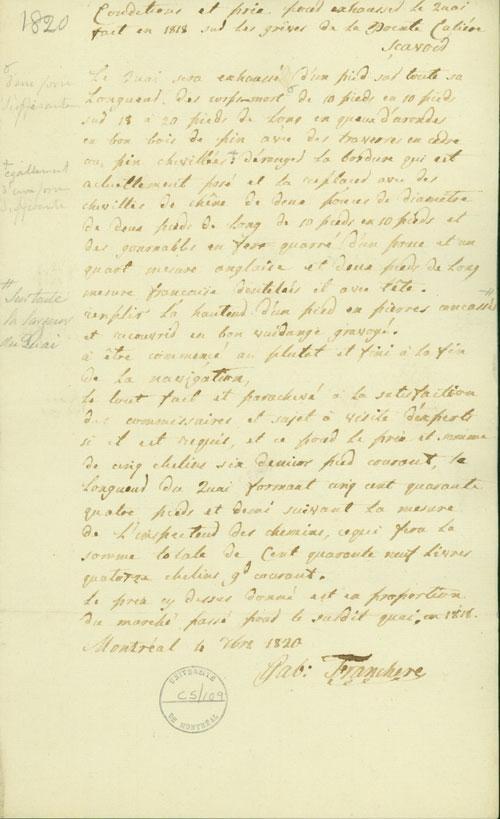 1820
Conditions et prix pour exhausser le Quai
fait en 1818 sur les grèves de la Pointe Calière
Sçavoir
Le Quai sera exhaussé d'un pied sur toute sa
Longueur, des corps-morts de 10 pieds en 10 pieds
sur 18 à 20 pieds de Long en queux d'arondes
en bon bois de pin avec des traverses en cèdre
ou pin chevillées + déranger la bordure qui est
actuellement posé et la replacer avec des
chevilles de chêne de deux pouces de diamètre
de deux pieds de long de 10 pieds en 10 pieds et
des gournables en fer quarré d'un pouce et un
quart mesure anglaise et deux pieds de Long
mesure francaise doublés et avec tête.
remplir la hauteur d'un pied en pierres concassés #
et recouvrir en bon vuidange gravoye.
à être commencé au plutot et fini à la fin
de la navigation,
Le tout fait et parachevé à la satisfaction
des commissaires et sujet à visite d'experts
si il est requis, et ce pour le prix et somme
de cinq chelins six deniers pied courant, la
Longueur du Quai formant cinq cent quarante
quatre pieds et demi suivant la mesure
de L'inspecteur des chemins, ce qui fera la
somme totale de Cent quarante neuf Livres
quatorze chelins, courant.
Le prix cy dessus donné est en proportion
du marché passé pour le susdit quai, en 1818.
Montréal 4 1820
Gab: Franchere
d'une
+ également
d'une
# Sur toute
la largeur
du Quai
UNIVERSITÉ
CS/109
DE MONTRÉAL